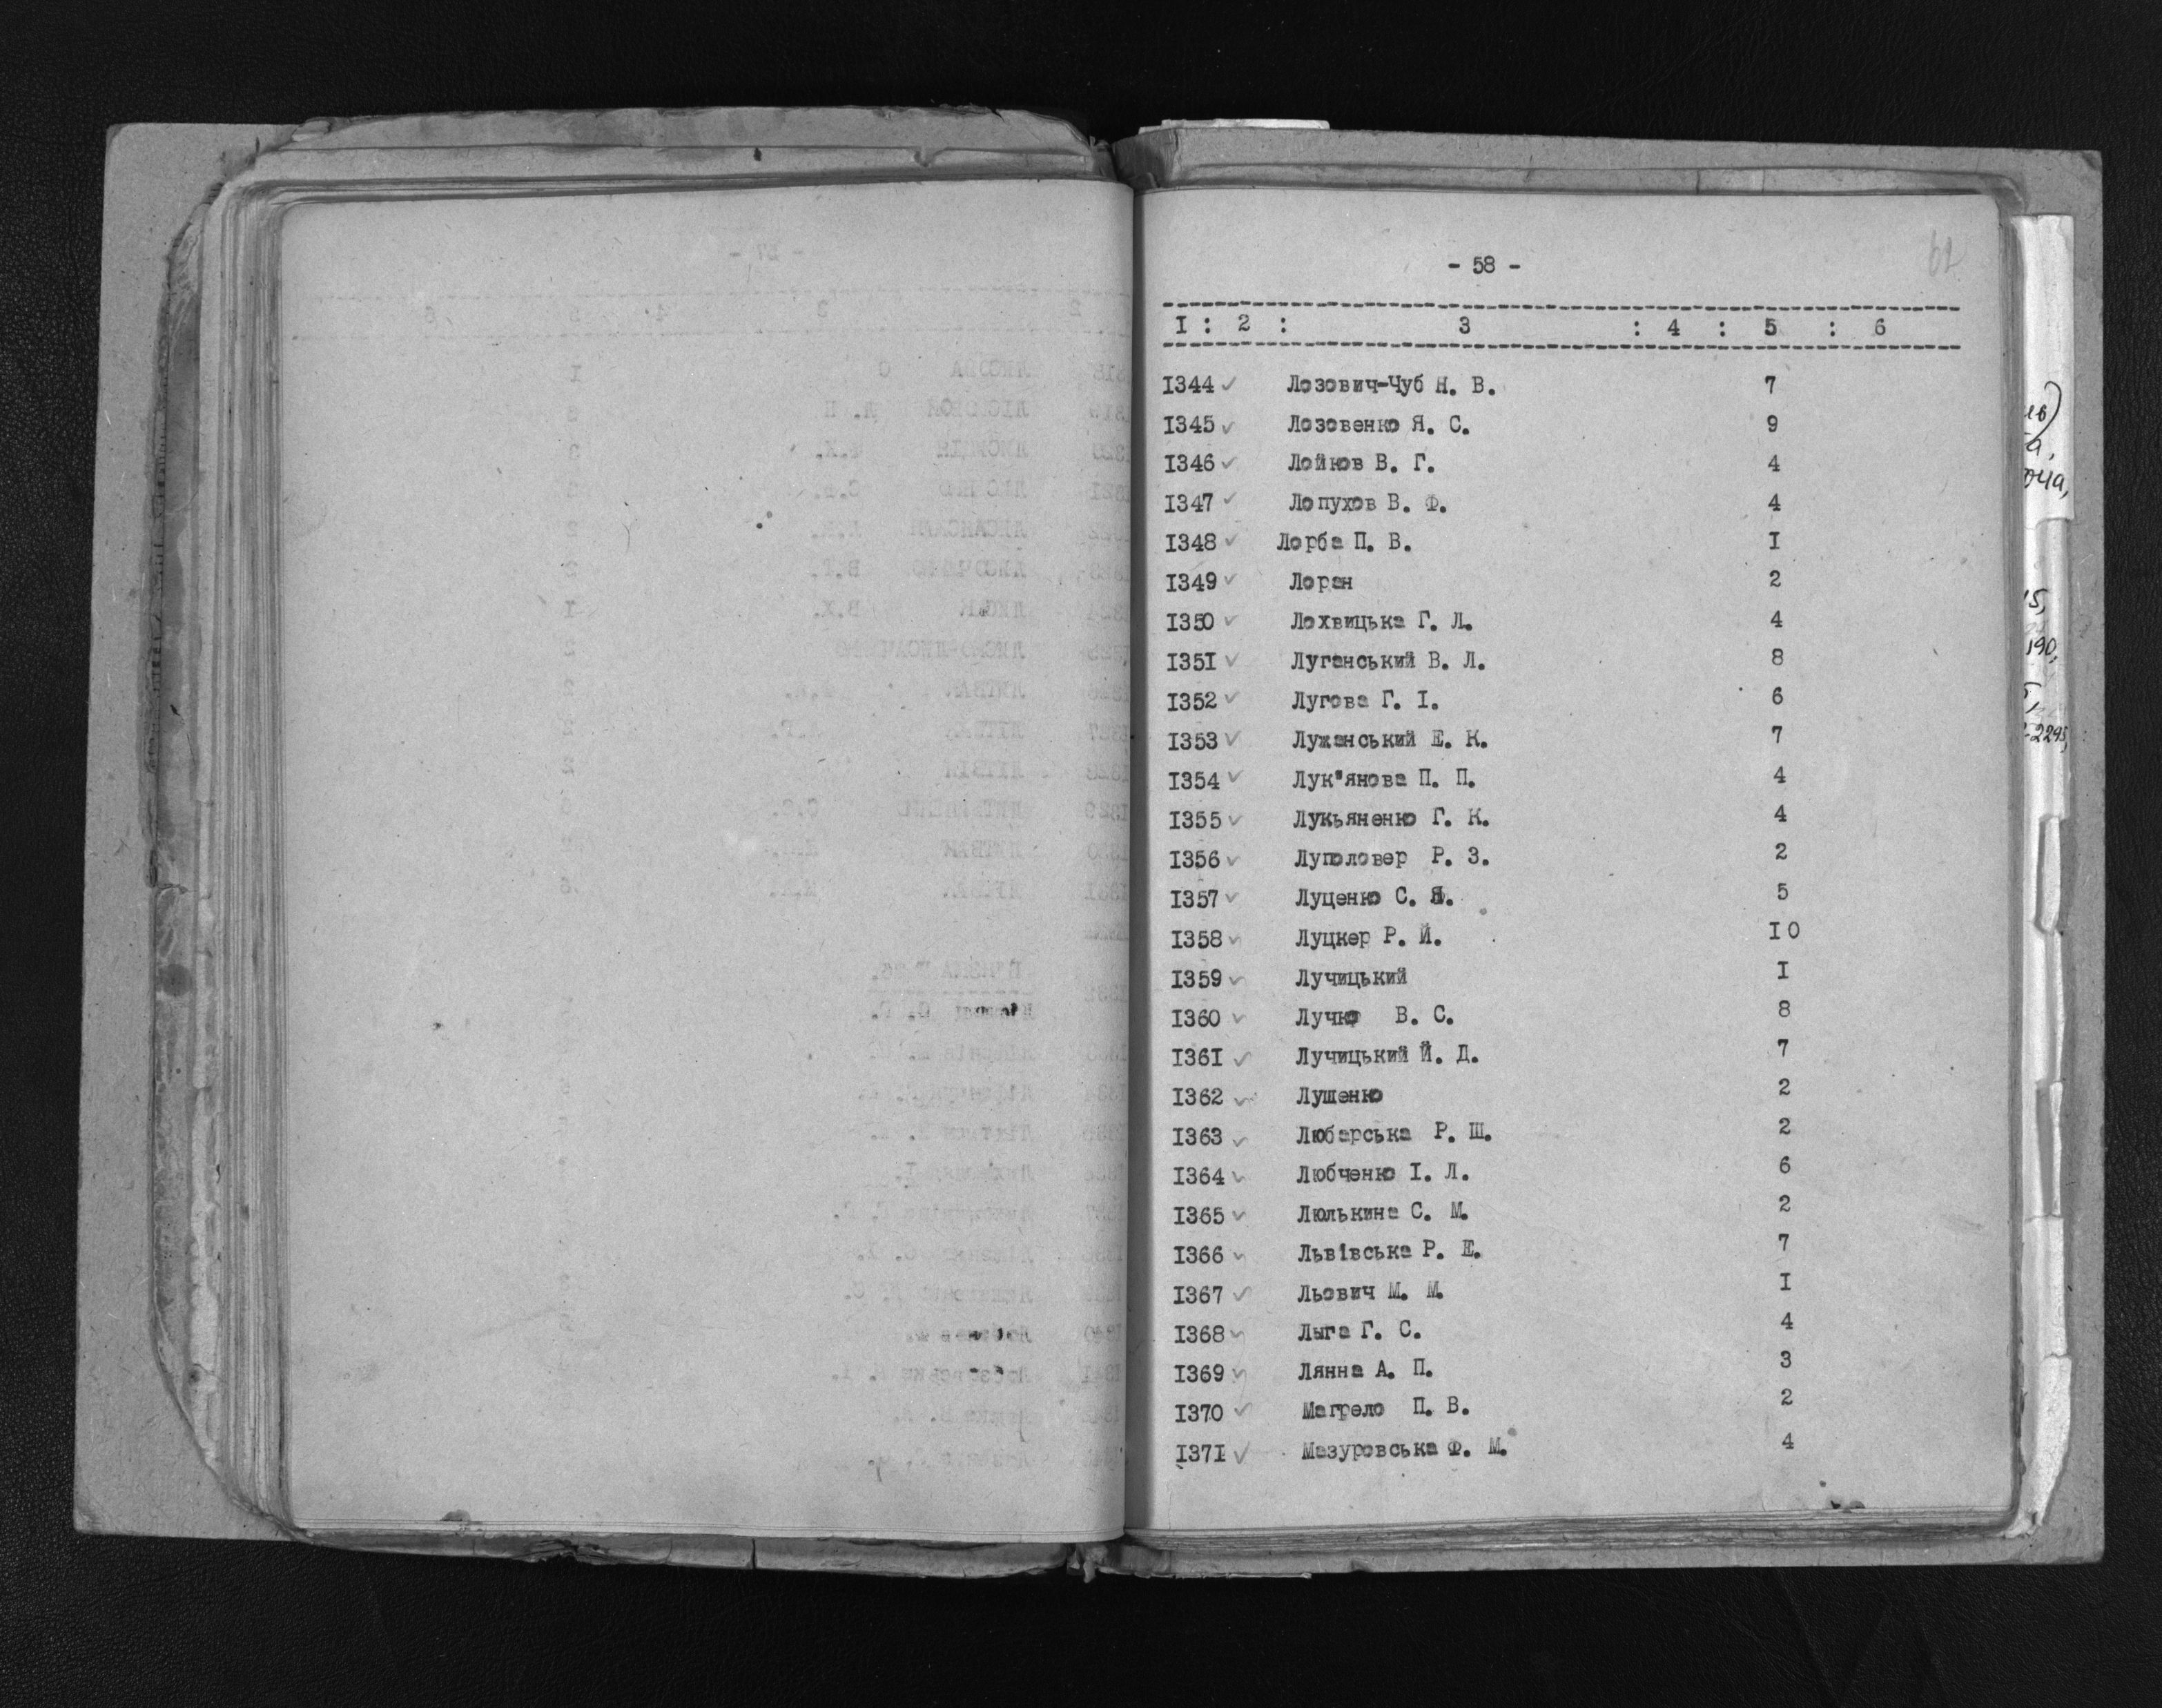 - 58 -
62
I : 2 : 3 : 4 : 5 : 6
I344 ✓ Лозович-Чуб Н. В. 7
I345 ✓ Лозовенко Я. С. 9
I346 ✓ Лойков В. Г. 4
I347 ✓ Лопухов В. Ф. 4
I348 ✓ Лорба П. В. I
I349 ✓ Лоран 2
I350 ✓ Лохвицька Г. Л. 4
I35I ✓ Луганський В. Л. 8
I352 ✓ Лугова Г. І. 6
I353 ✓ Лужанський Е. К. 7
I354 ✓ Лук"янова П. П. 4
I355 ✓ Лукьяненко Г. К. 4
I356 ✓ Луполовер Р. З. 2
I357 ✓ Луценко С. Я. 5
I358 ✓ Луцкер Р. Й. I0
I359 ✓ Лучицький I
I360 ✓ Лучко В. С. 8
I36I ✓ Лучицький Й. Д. 7
I362 ✓ Лушенко 2
I363 ✓ Любарська Р. Ш. 2
I364 ✓ Любченко І. Л. 6
I365 ✓ Люлькина С. М. 2
I366 ✓ Львівська Р. Е. 7
I367 ✓ Льович М. М. I
I368 ✓ Лыга Г. С. 4
I369 ✓ Лянна А. П. 3
I370 ✓ Магрело П. В. 2
I37I ✓ Мазуровська Ф. М. 4
190,
-2295,